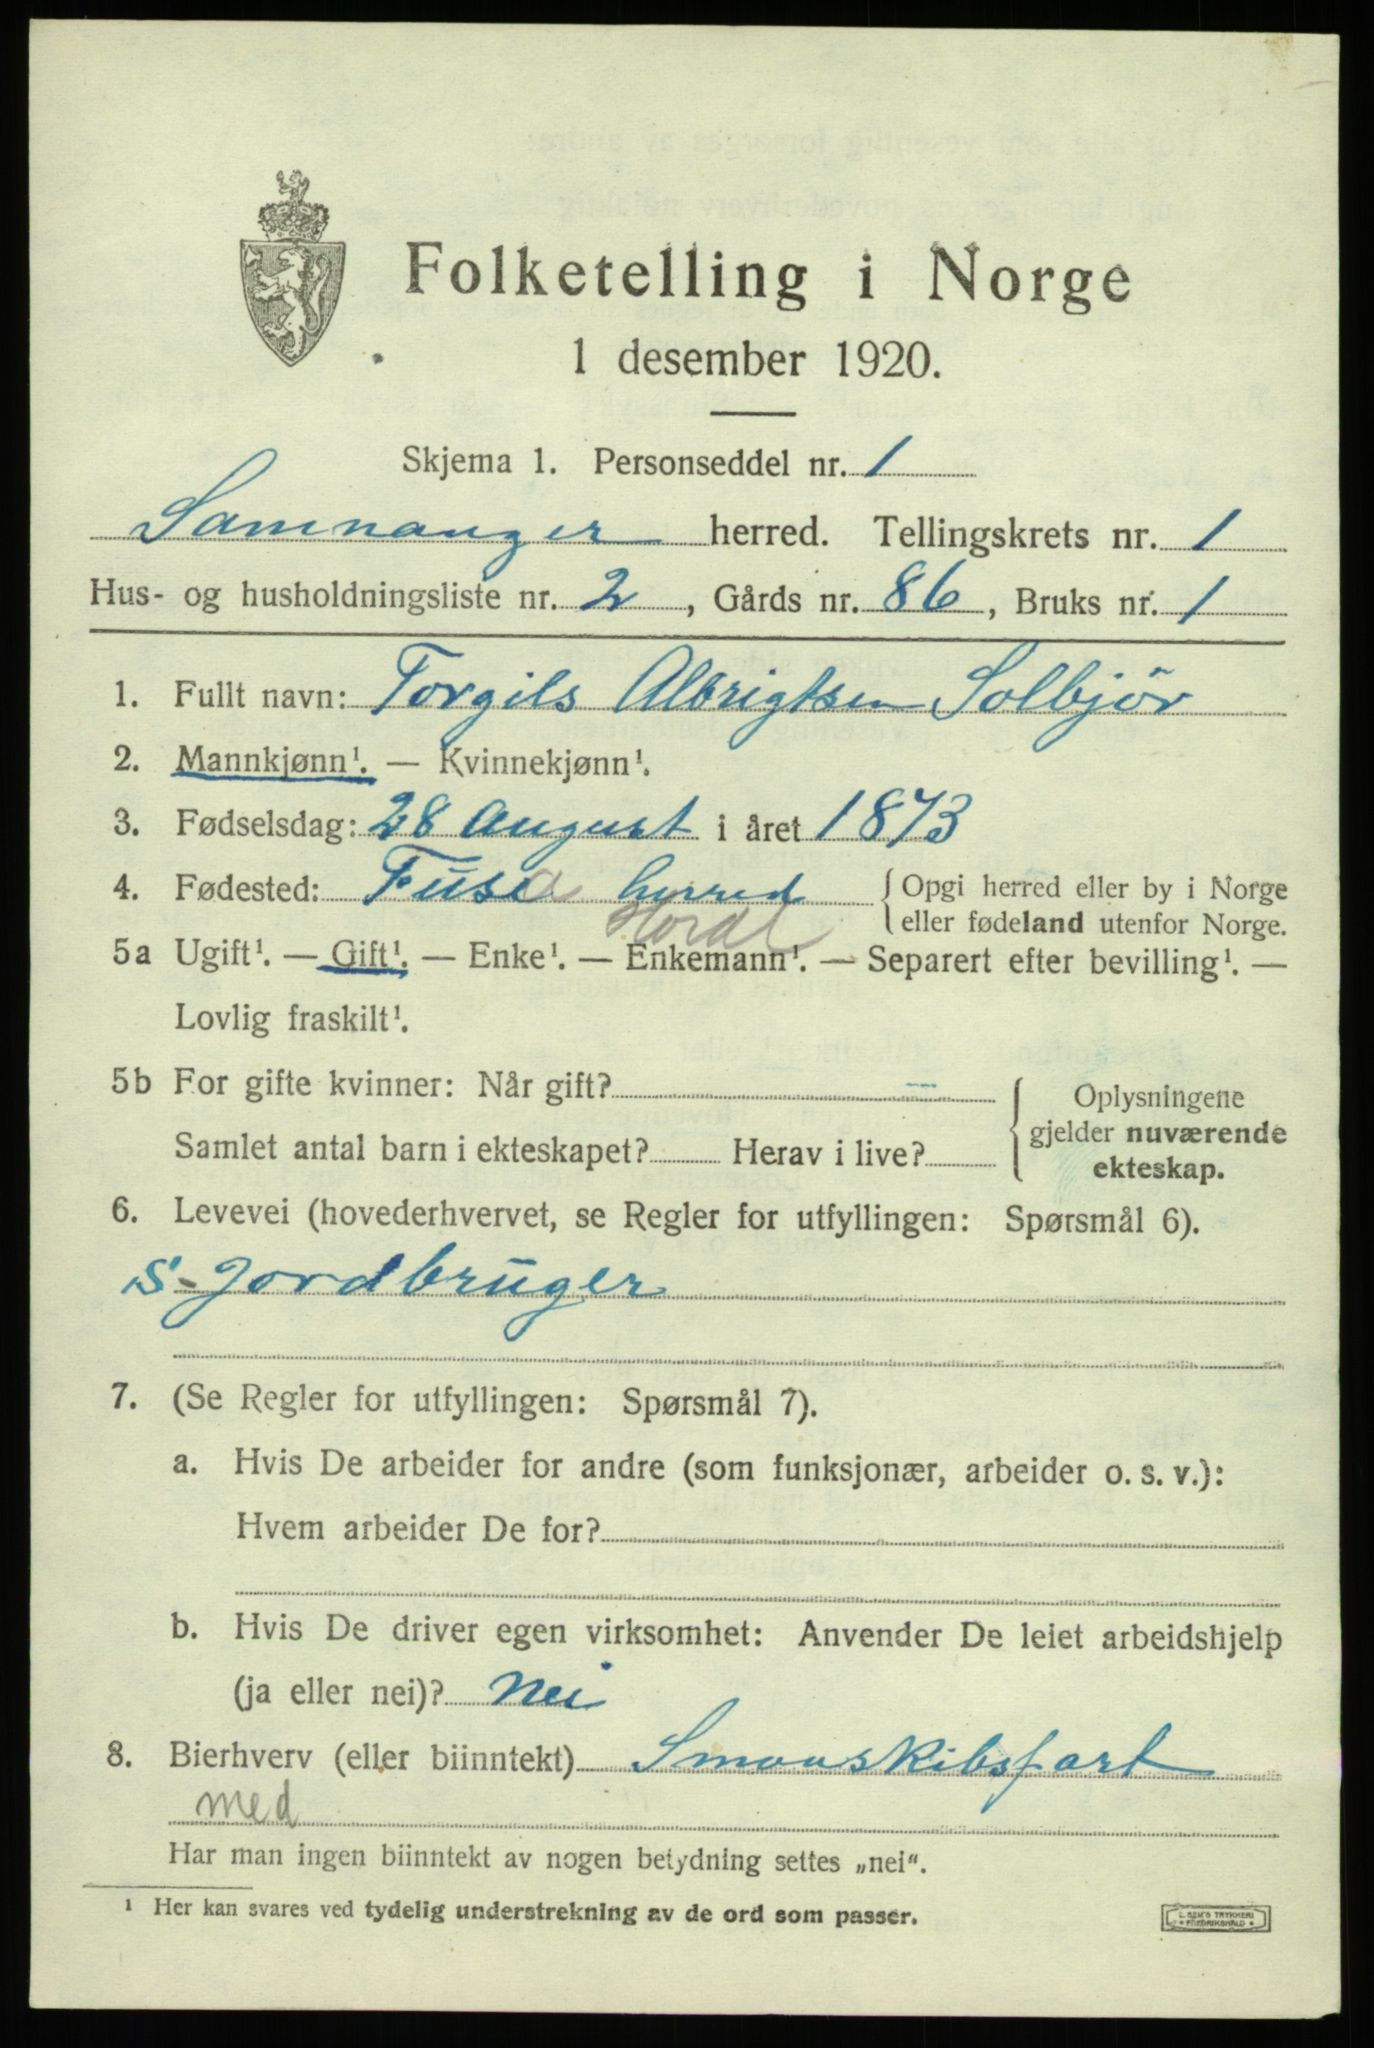 Folketelling i Norge
1 desember 1920.
Skjema 1. Personseddel nr. 1
Samnanger herred. Tellingskrets nr. 1
Hus- og husholdningsliste nr. 2, Gårds nr. 86, Bruks nr. 1
1. Fullt navn: Torgils Albrigtsen Solbjör
2. Mannkjønn¹. — Kvinnekjønn¹.
3. Fødselsdag: 28 August i året 1873
4. Fødested: Fusa herred { Opgi herred eller by i Norge
Hordl eller fødeland utenfor Norge.
5a Ugift¹. — Gift¹. — Enke¹. — Enkemann¹. — Separert efter bevilling¹. —
Lovlig fraskilt¹.
5b For gifte kvinner: Når gift? — { Oplysningene
gjelder nuværende
Samlet antal barn i ekteskapet? Herav i live?
ekteskap.
6. Levevei (hovederhvervet, se Regler for utfyllingen: Spørsmål 6).
S-Jordbrŭger
7. (Se Regler for utfyllingen: Spørsmål 7).
a. Hvis De arbeider for andre (som funksjonær, arbeider o. s. v.):
Hvem arbeider De for?
b. Hvis De driver egen virksomhet: Anvender De leiet arbeidshjelp
(ja eller nei)? Nei
8. Bierhverv (eller biinntekt) Smaaskibsfart
med
Har man ingen biinntekt av nogen betydning settes „nei“.
¹ Her kan svares ved tydelig understrekning av de ord som passer.
L. SEM'S TRYKKERI
FREDRIKSHALD